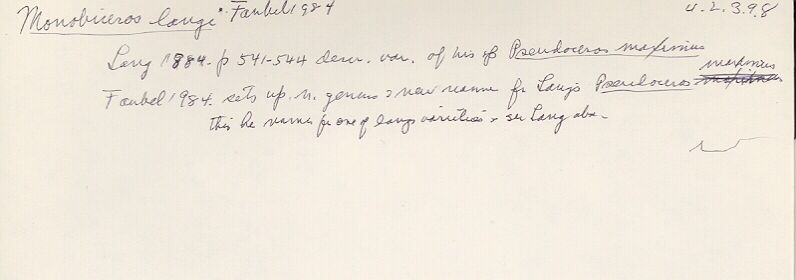 Monobiceros langi Faubel 1984 4.2.3.98
Lang 1884 p 541-544 descr. var. of his sp Pseudoceros maximus
maximus
Faubel 1984 sets up n. genus & new name for Lang's Pseudoceros
this he names for one of Lang's varieties & see Lang abo-